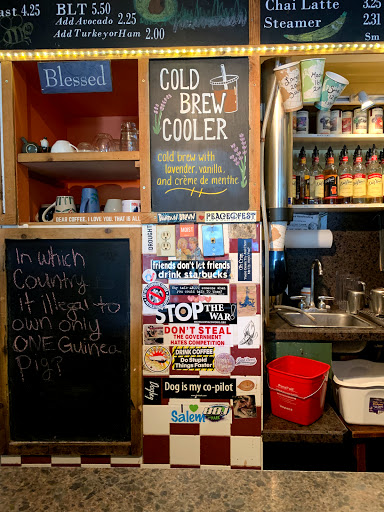 BLT 5.50
Add Avocado 2.25
Add Turkey or Ham 2.00
Chai Latte 3.25
Steamer 2.31
Sm
Blessed
COLD
BREW
COOLER
cold brew with
lavender, vanilla,
and crème de menthe
DEAR COFFEE, I LOVE YOU. THAT IS ALL.
PEACEFEST
In which
Country
is illegal to
own only
ONE Guinea
Pig?
DROUGHT
friends don't let friends
drink starbucks
STOP THE WAR!
DON'T STEAL
THE GOVERNMENT
HATES COMPETITION
DRINK COFFEE
Do Stupid
Things Faster
Dog is my co-pilot
Salem